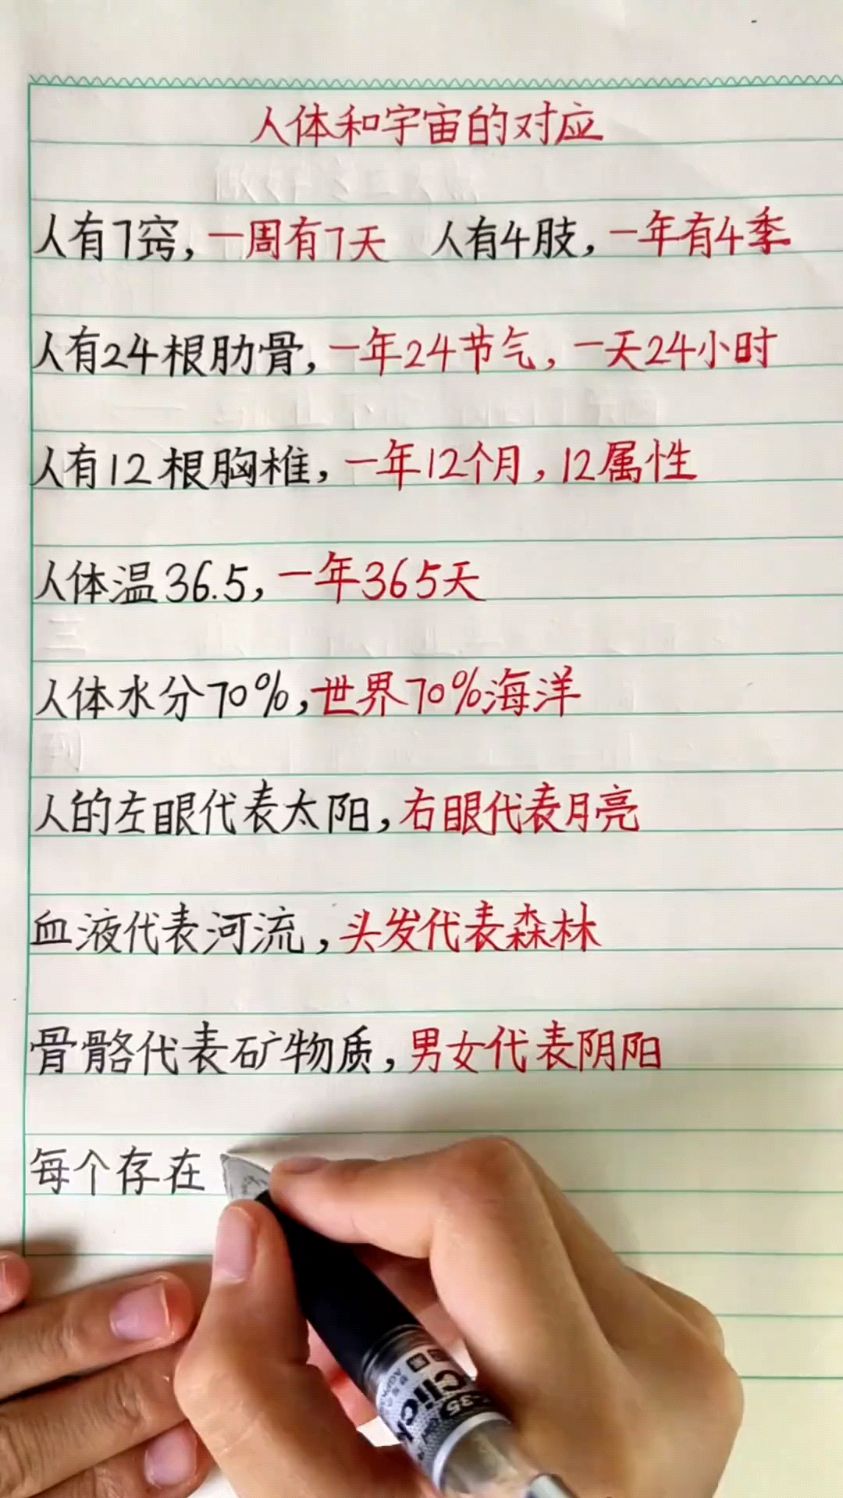 人体和宇宙的对应
人有7窍,一周有7天 人有4肢,一年有4季
人有24根肋骨,一年24节气,一天24小时
人有12根胸椎,一年12个月,12属性
人体温36.5,一年365天
人体水分70%,世界70%海洋
人的左眼代表太阳,右眼代表月亮
血液代表河流,头发代表森林
骨骼代表矿物质,男女代表阴阳
每个存在
Click